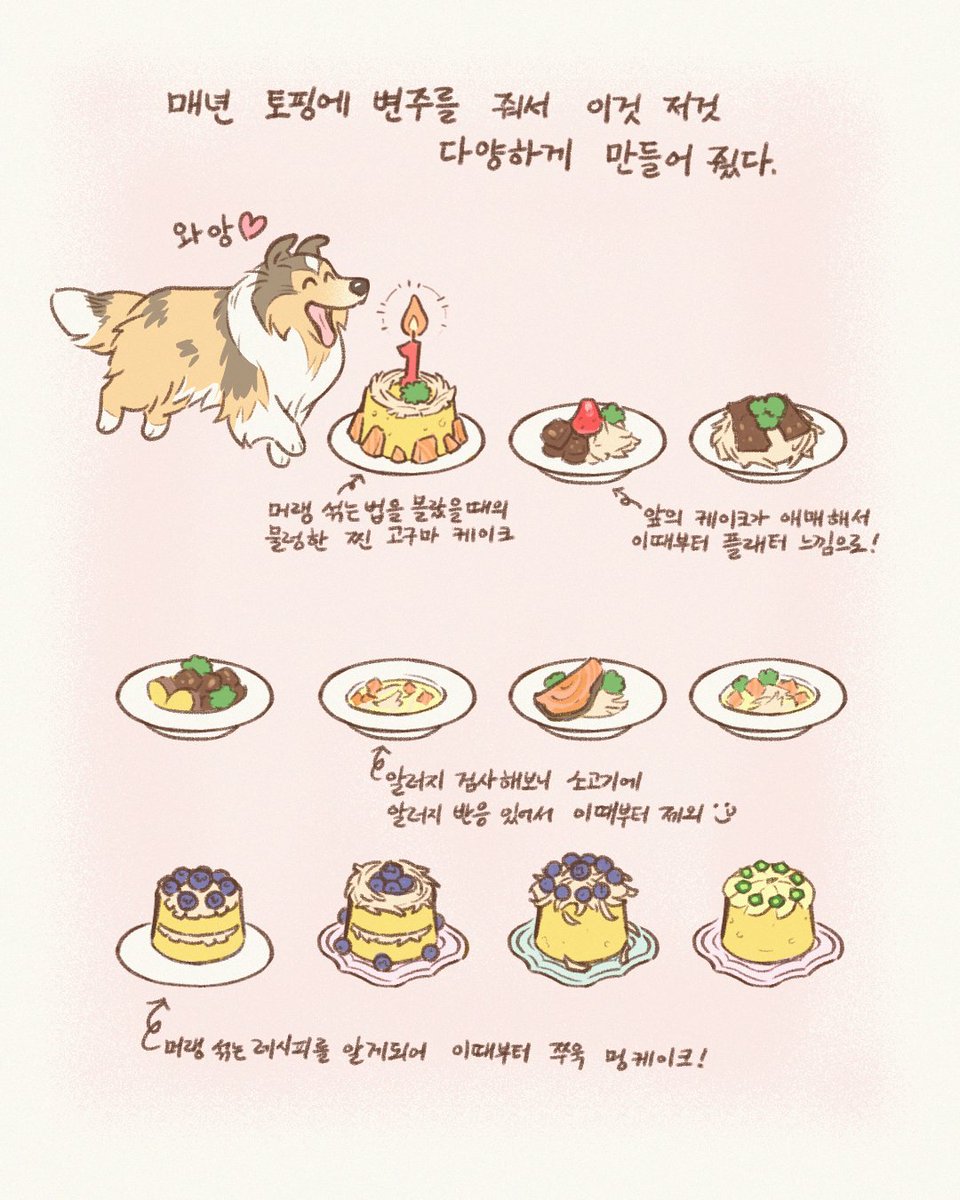 매년 토핑에 변주를 줘서 이것 저것
다양하게 만들어 줬다.
와앙
1
머랭 섞는 법을 몰랐을 때의
물렁한 찐 고구마 케이크
앞의 케이크가 애매해서
이때부터 플래터 느낌으로!
알러지 검사해보니 소고기에
알러지 반응 있어서 이때부터 제외
머랭 섞는 레시피를 알게되어 이때부터 쭈욱 멍케이크!